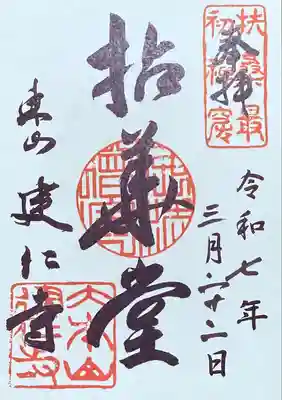 扶桑最
初禅窟
奉拝
令和七年
三月二十二日
拈華堂
東山 建仁寺